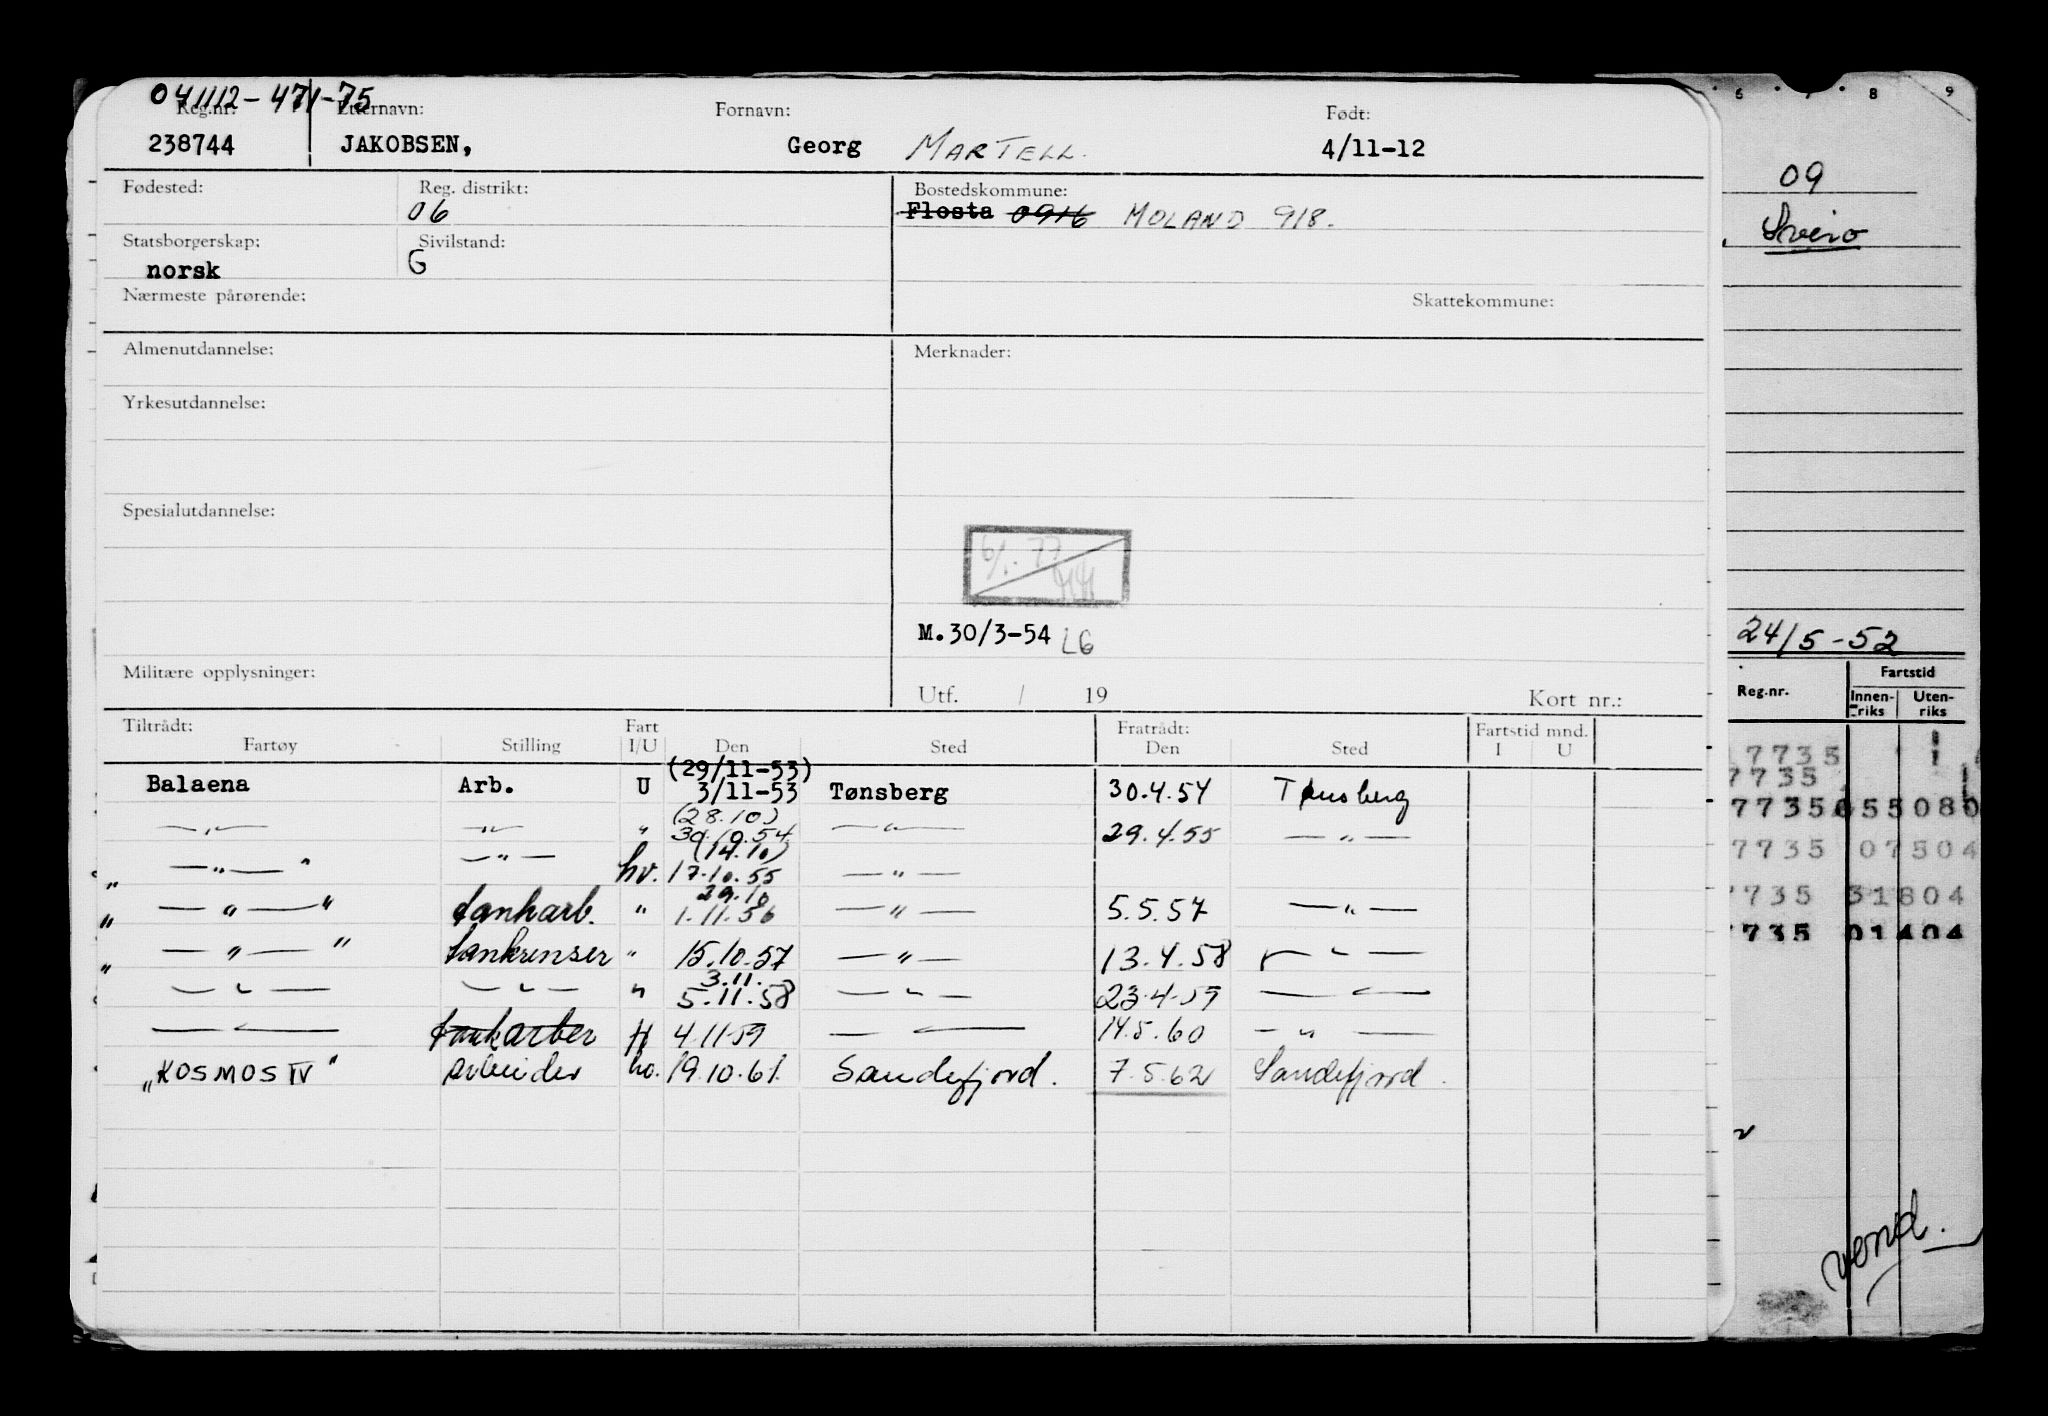 041112-471-75
Reg.nr: Etternavn: Fornavn: Født:
238744 JAKOBSEN, Georg MARTELL. 4/11-12
Fødested: Reg. distrikt: Bostedskommune:
06 Flosta 0916 MOLAND 918.
Statsborgerskap: Sivilstand:
norsk G
Nærmeste pårørende: Skattekommune:
Almenutdannelse: Merknader:
Yrkesutdannelse:
Spesialutdannelse:
6/1-77
M.30/3-54 LG
Militære opplysninger:
Utf. / 19 Kort nr.:
Tiltrådt: Fart Fratrådt: Fartstid mnd.
Fartøy Stilling I/U Den Sted Den Sted I U
(29/11-53)
Balaena Arb. U 3/11-53 Tønsberg 30.4.54 Tønsberg
(28.10)
—"— —"— " 30.10.54 —"— 29.4.55 —"—
(14.10)
" —"— " —"— hv. 17.10.55 —"—
29.10
" —"— " tankarb. " 1.11.56 —"— 5.5.57 —"—
" —"— " tankrenser " 15.10.57 —"— 13.4.58 —"—
3.11.
—"— —"— " 5.11.58 —"— 23.4.59 —"—
—"— tankarber H 4.11.59 —"— 14.5.60 —"—
"KOSMOS IV" arbeider hv. 19.10.61. Sandefjord. 7.5.62 Sandefjord.
6 7 8 9
09
Sveio
24/5-52
Reg.nr. Fartstid
Innen-riks Uten-riks
7735
7735
7735 055080
7735 07504
7735 31804
7735 01404
vend.